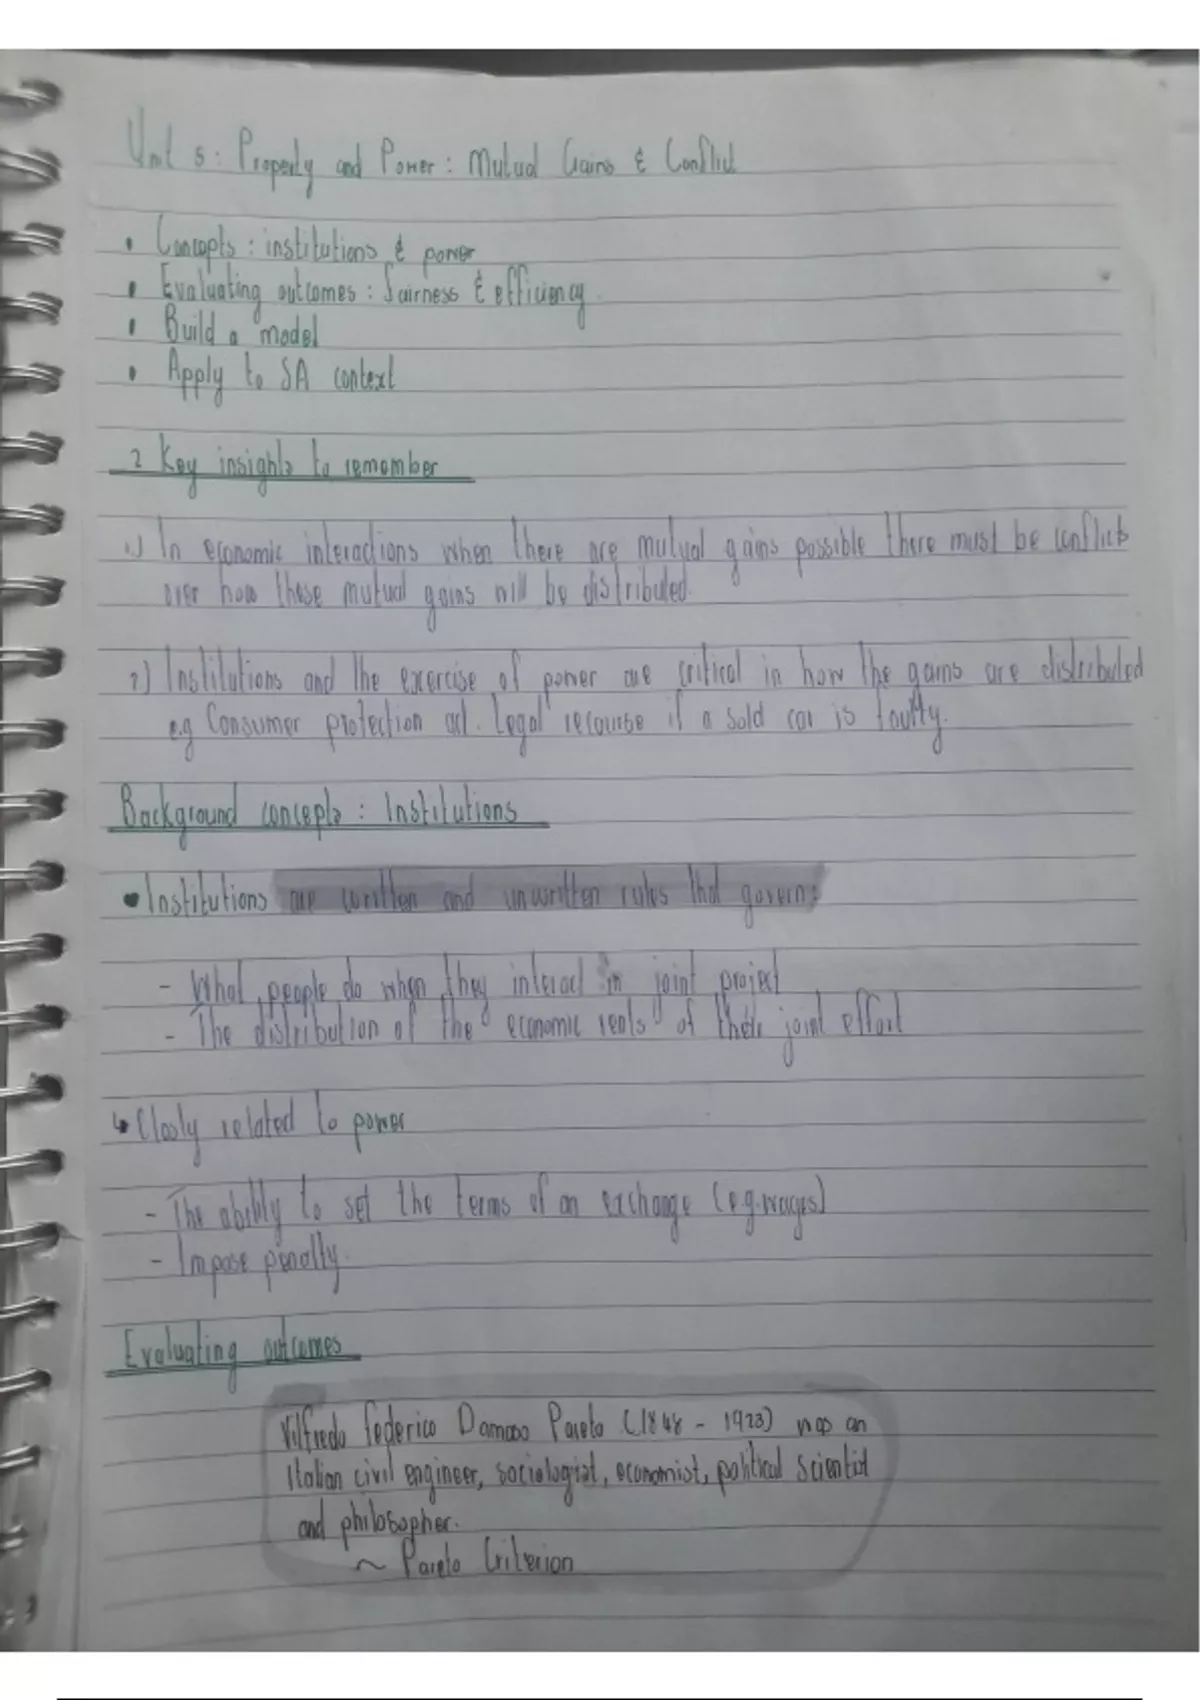 Unit 5: Property and Power: Mutual Gains & Conflict
• Concepts: institutions & power
• Evaluating outcomes: fairness & efficiency.
• Build a model
• Apply to SA context
2 Key insights to remember
1.) In economic interactions when there are mutual gains possible there must be conflicts
over how these mutual gains will be distributed.
2) Institutions and the exercise of power are critical in how the gains are distributed
e.g Consumer protection act. Legal recourse if a sold car is faulty.
Background concepts: Institutions
• Institutions are written and unwritten rules that govern:
- What people do when they interact in joint project
- The distribution of the economic rents of their joint effort
↳ Closly related to power
- The ability to set the terms of an exchange (e.g. wages)
- Impose penalty.
Evaluating outcomes
Vilfredo Federico Damaso Pareto (1848 - 1923) was an
Italian civil engineer, sociologist, economist, political scientist
and philosopher.
~ Pareto Criterion